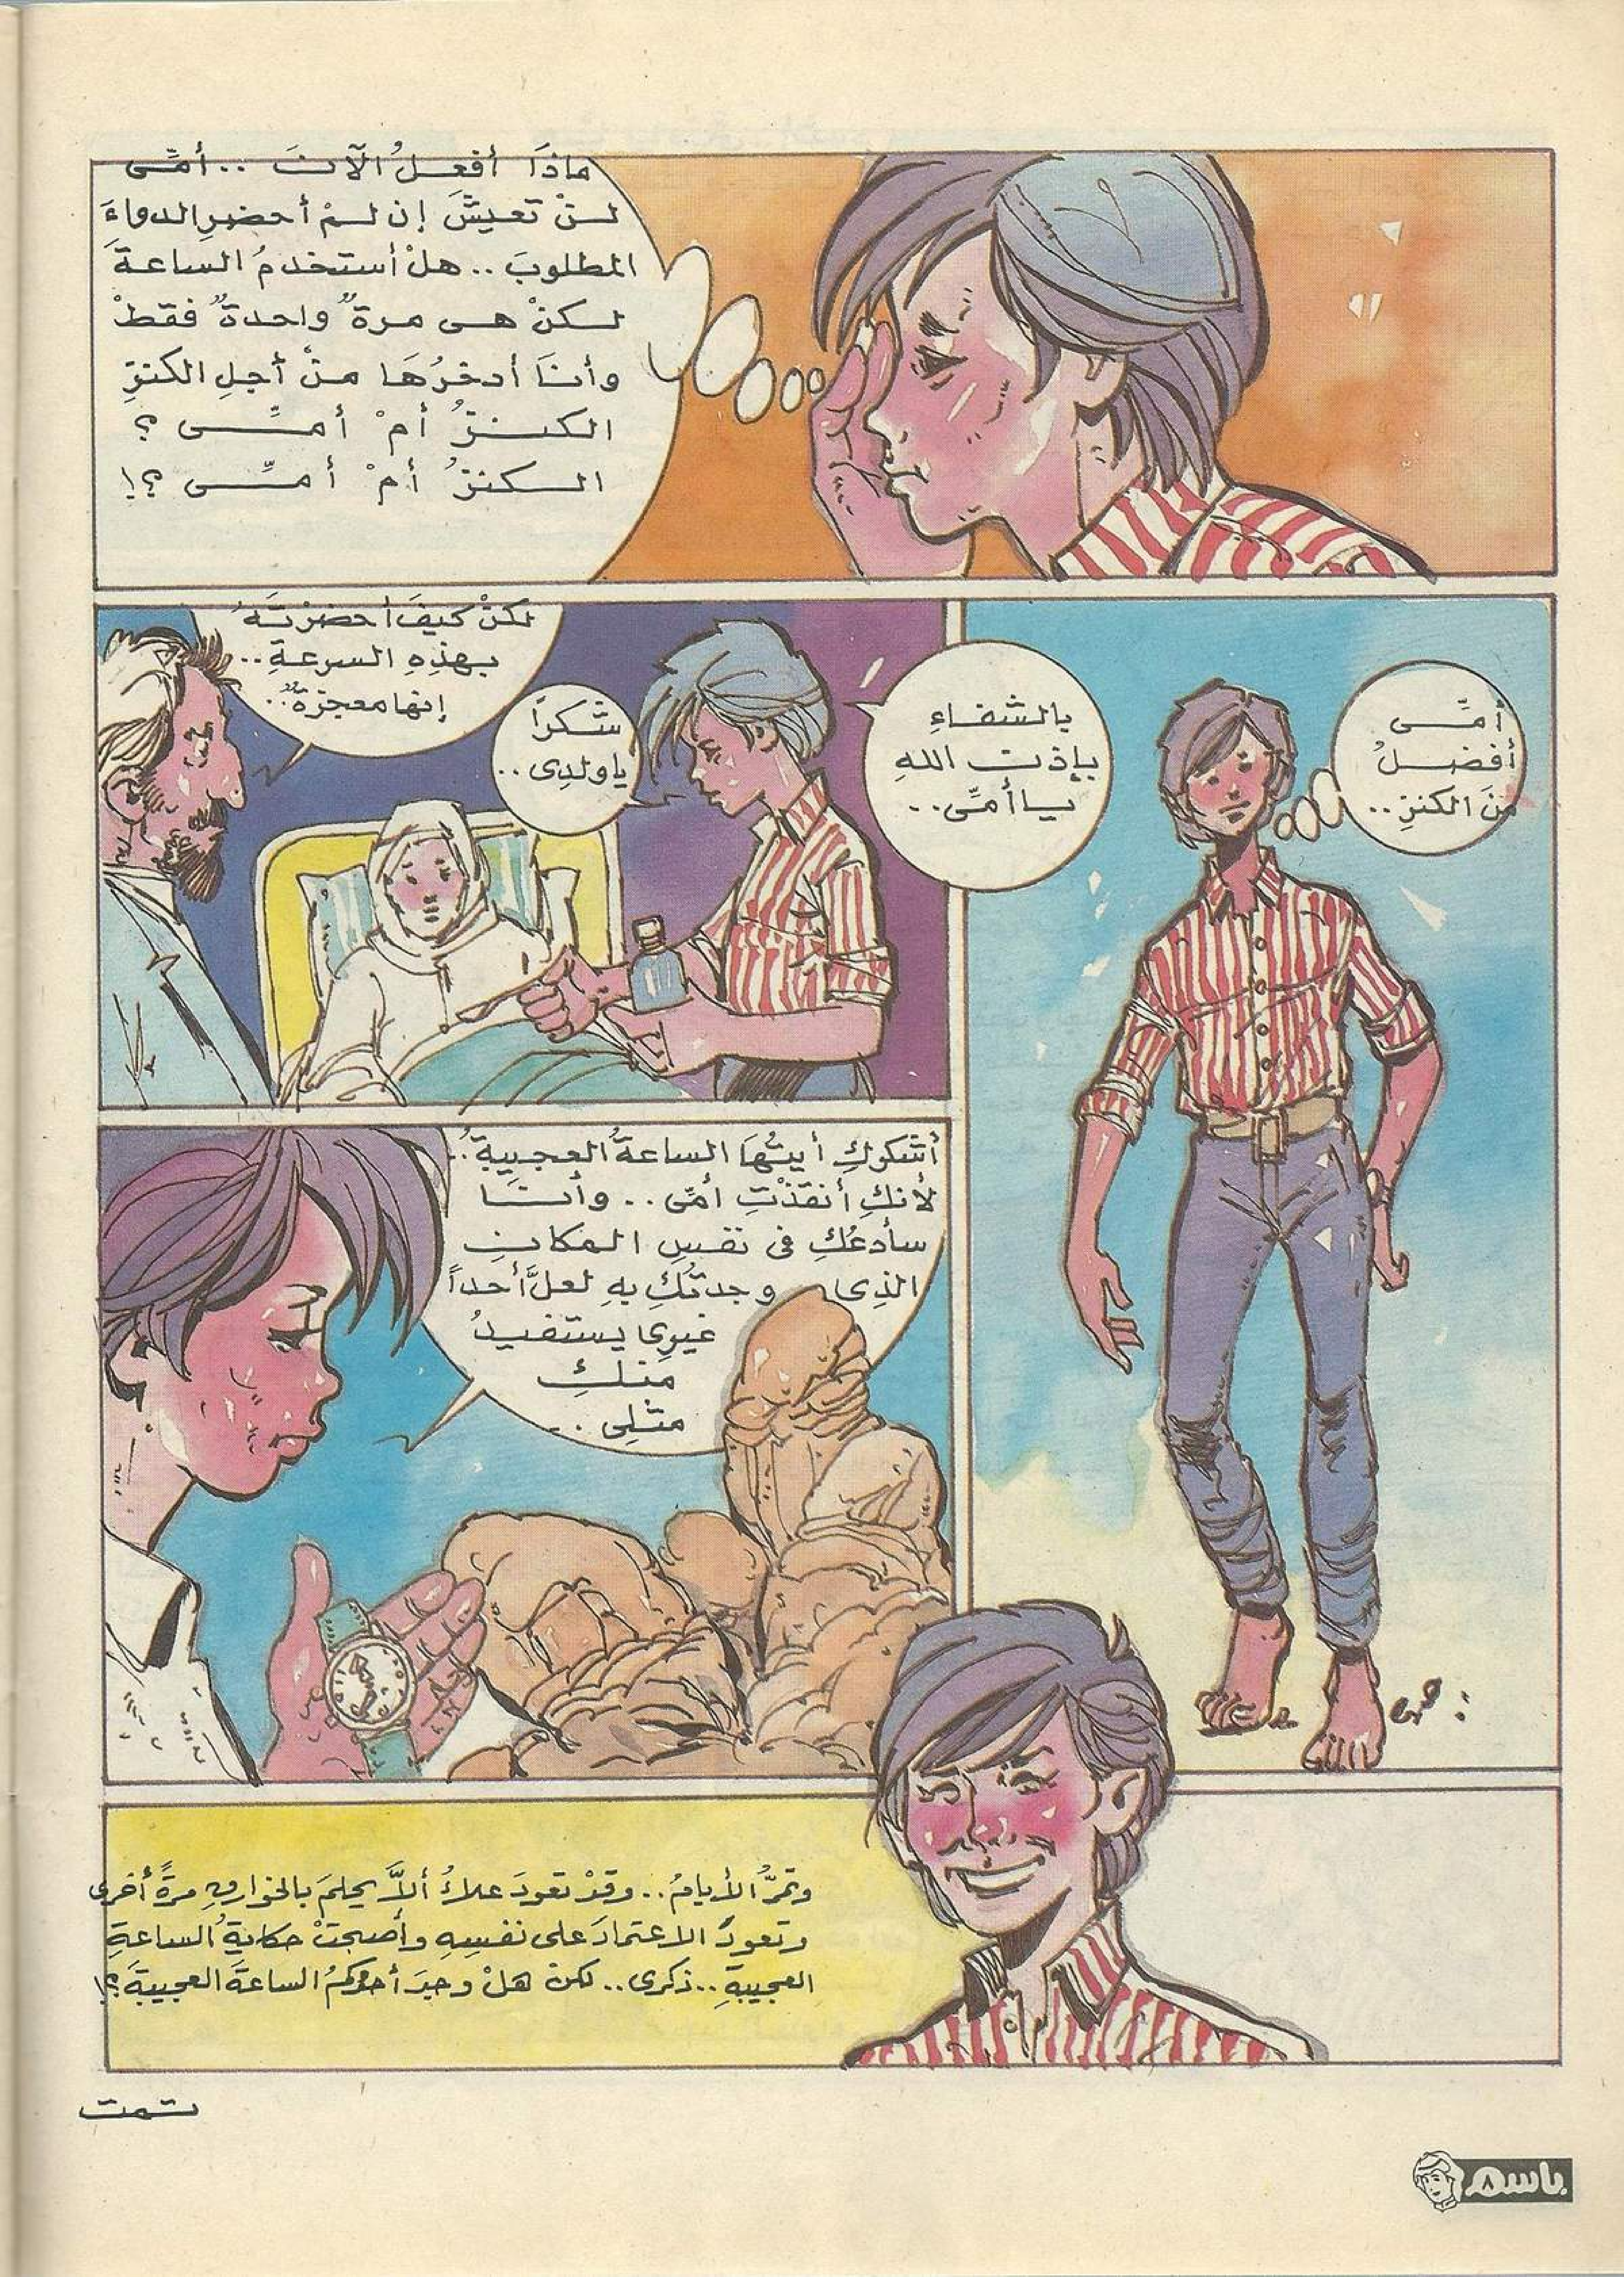 ماذَا أفعلُ الآنَ .. أمِّى
لنْ تعيشَ إن لمْ أحضرِ الدواءَ
المطلوبَ .. هلْ أستخدمُ الساعةَ
لكنْ هى مرةٌ واحدةٌ فقطْ
وأنَا أدخرُهَا منْ أجلِ الكنزِ
الكنزُ أمْ أمِّى ؟
الكنزُ أمْ أمِّى ؟!
أمِّى
أفضلُ
منَ الكنزِ ..
بالشفاءِ
بإذن اللهِ
يا أمِّى ..
شكرًا
يا ولدِى ..
لكنْ كيفَ أحضرْتَهُ
بهذِهِ السرعةِ ..
إنها معجزةٌ ..
صبرى
أشكركِ أيتُهَا الساعةُ العجيبةُ ..
لأنكِ أنقذْتِ أمِّى .. وأنا
سأدعُكِ فى نفسِ المكانِ
الذِى وجدتُكِ بهِ لعلَّ أحداً
غيرِى يستفيدُ
منكِ
مثلِى ..
وتمرُّ الأيامُ .. وقدْ تعودَ علاءُ ألاَّ يحلمَ بالخوارقِ مرةً أخرى
وتعودَ الاعتمادَ على نفسِهِ وأصبحتْ حكايةُ الساعةِ
العجيبةِ .. ذكرى .. لكنْ هلْ وجدَ أحدُكمُ الساعةَ العجيبةَ ؟!
تمت
باسم
٨